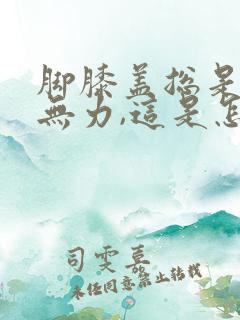 脚膝盖总是
無力,這是怎
司雯嘉
未经同意禁止转载